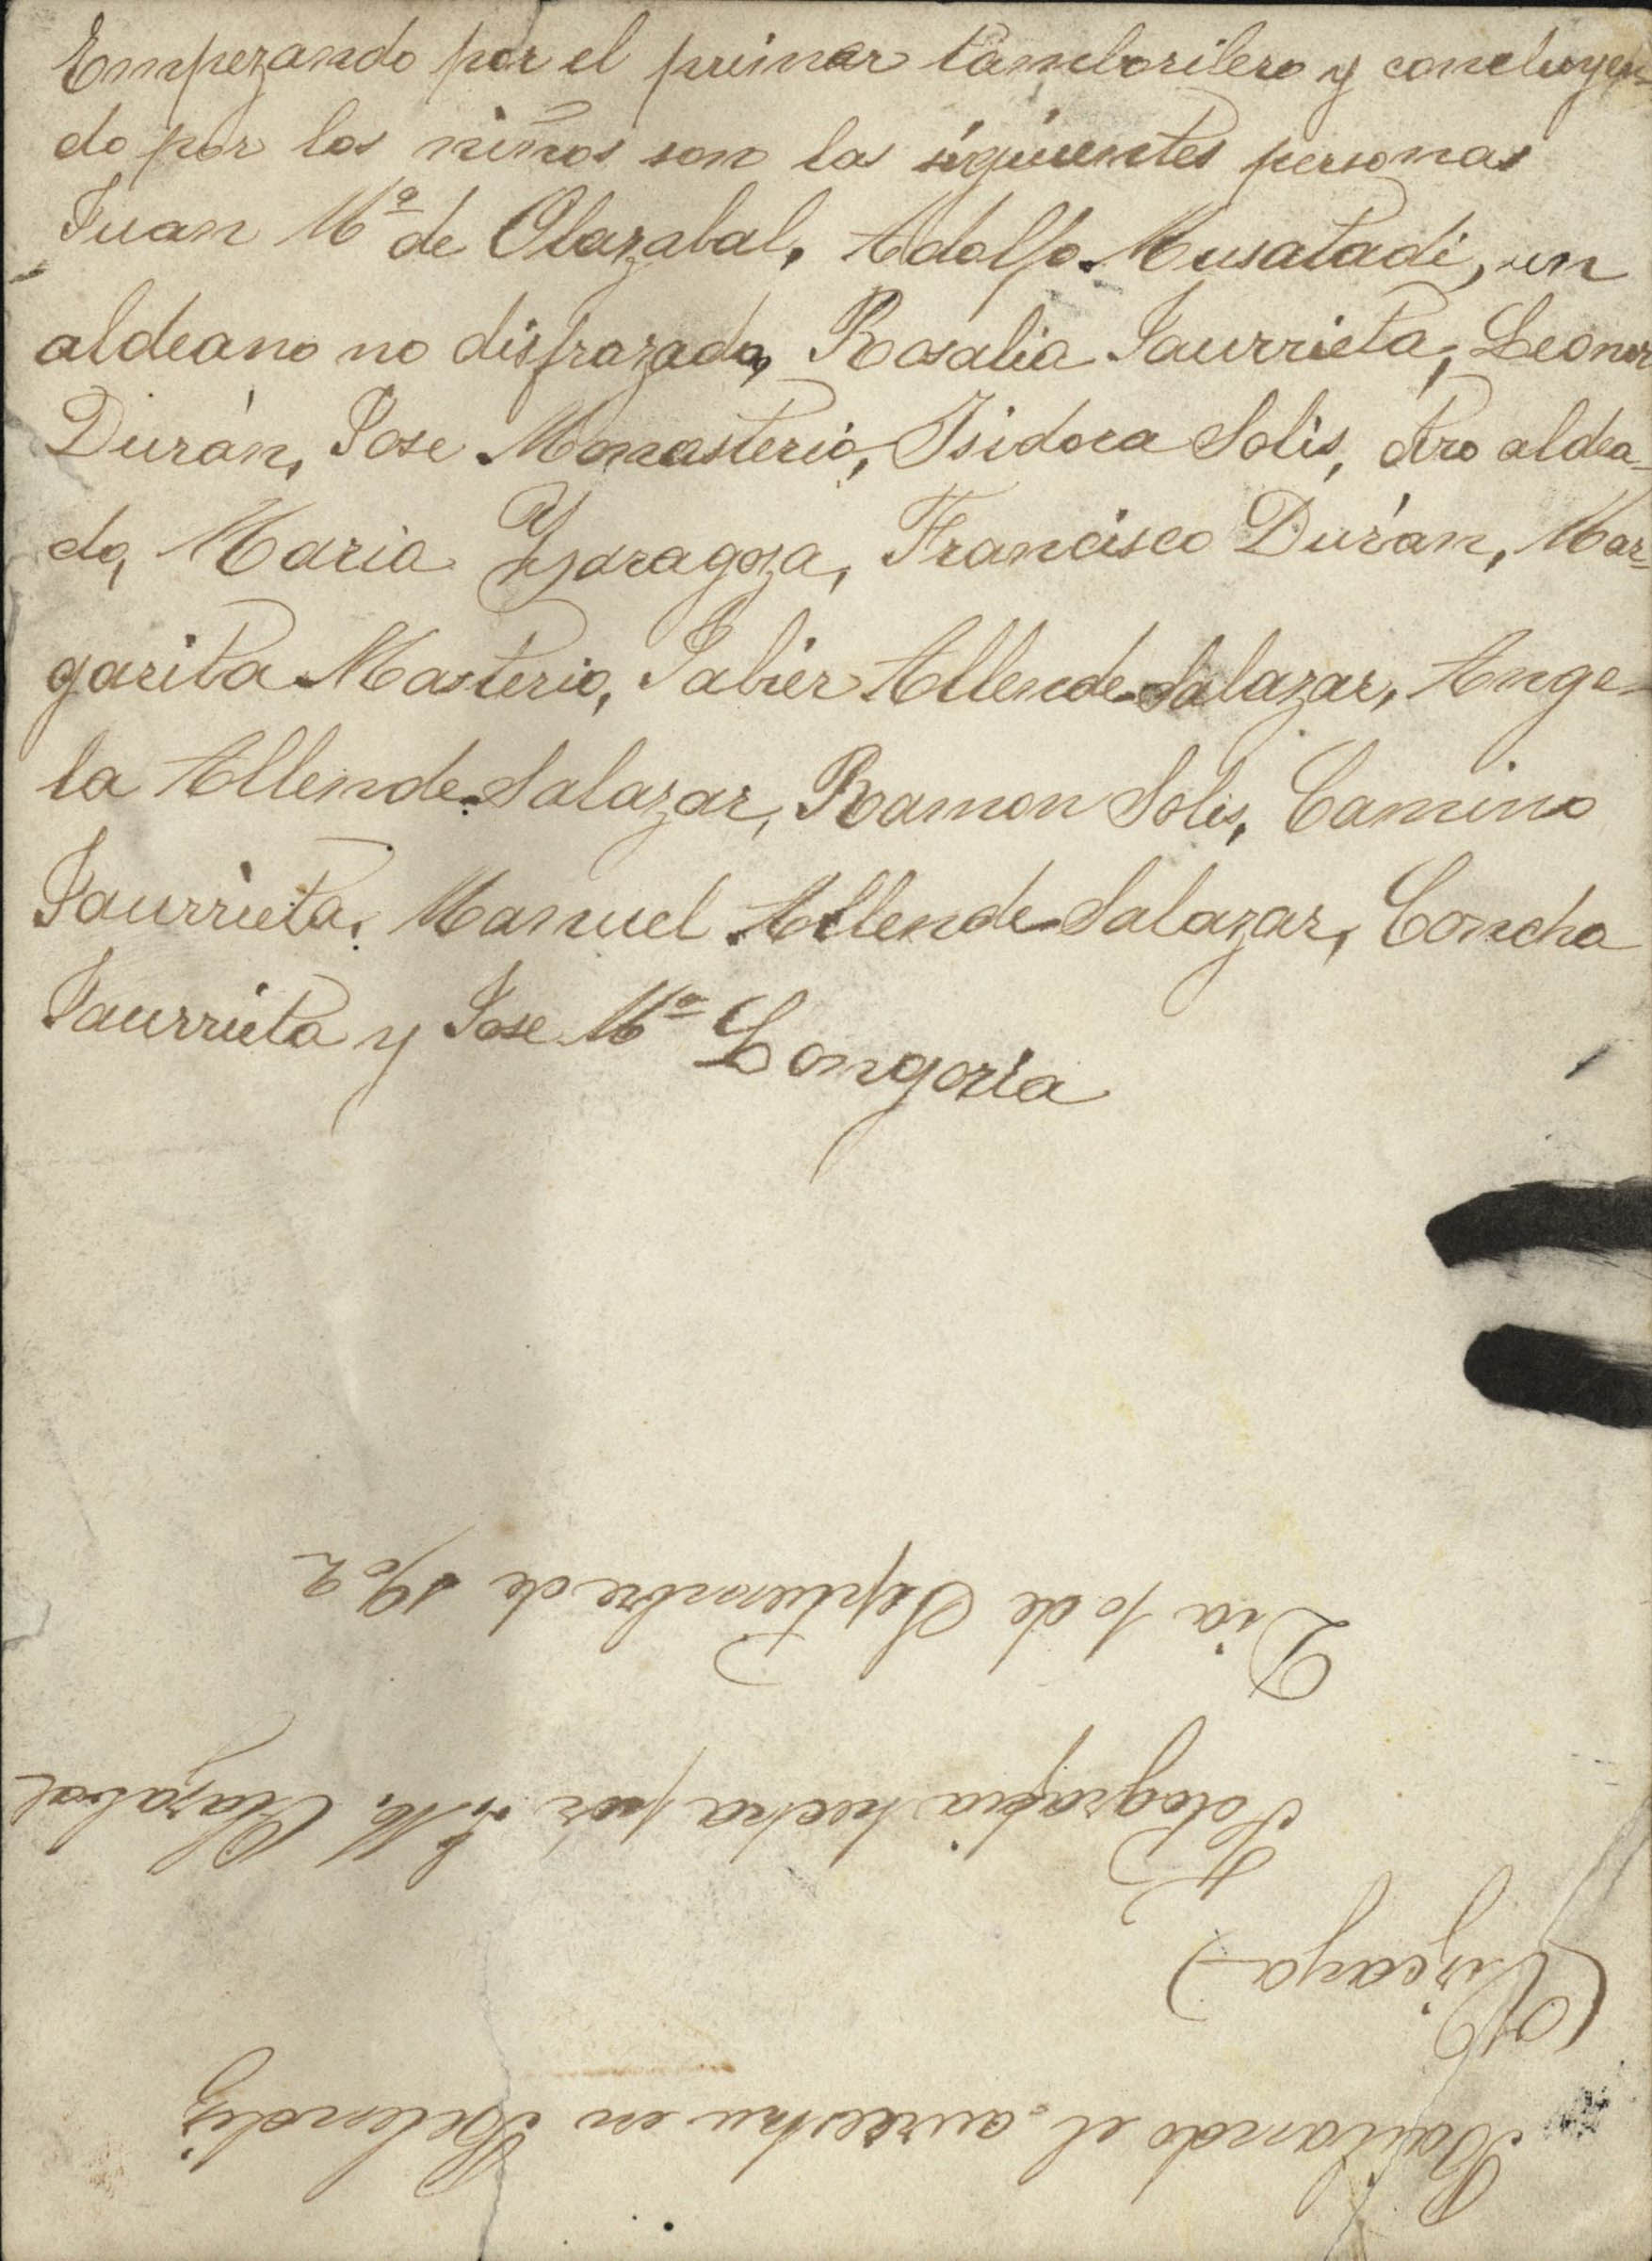 Empezando por el primer tamborilero y concluyen-
do por los niños son las siguientes personas
Juan Mª de Olazabal, Adolfo Musatadi, un
aldeano no disfrazado, Rosalia Jaurrieta, Leonor
Durán, Jose Monasterio, Isidora Solis, otro aldea-
do, Maria Zaragoza, Francisco Durán, Mar-
garita Masterio, Jabier Allende-Salazar, Ange-
la Allende-Salazar, Ramon Solis, Camino
Jaurrieta, Manuel Allende-Salazar, Concha
Jaurrieta y Jose Mª Longoria
Bailando el auresku en Belendiz
(Vizcaya)
Fotografia hecha por J. M. Olazabal
Dia 10 de Septiembre de 1902